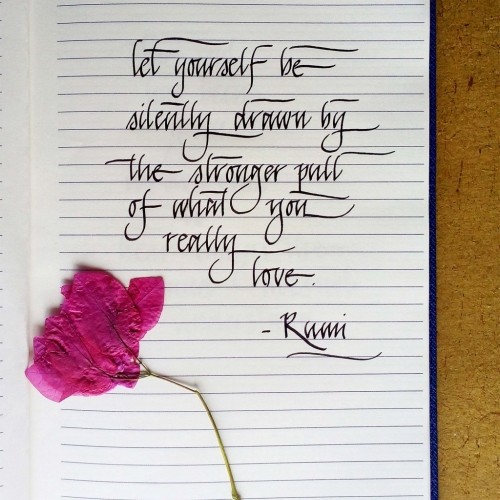 let yourself be
silently drawn by
the stronger pull
of what you
really
love.
- Rumi